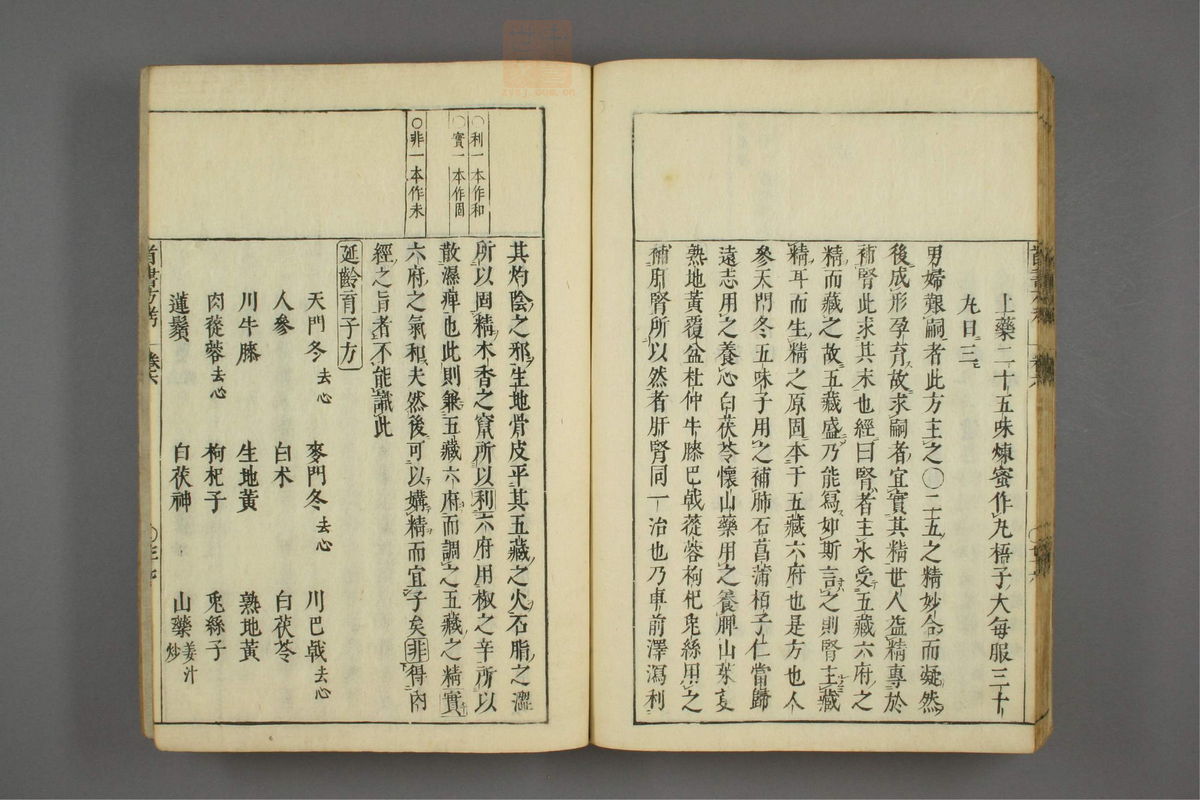 上藥二十五味煉蜜作丸梧子大每服三十
丸日三
男婦艱嗣者此方主之○二五之精妙合而凝然
後成形孕育故求嗣者宜實其精世人盗精專於
補腎此求其末也經曰腎者主水受五藏六府之
精而藏之故五藏盛乃能寫如斯言之則腎主藏
精耳而生精之原固本于五藏六府也是方也人
參天門冬五味子用之補肺石菖蒲栢子仁當歸
遠志用之養心白茯苓懷山藥用之養脾山茱萸
熟地黃覆盆杜仲牛膝巴戟蓯蓉枸杞兔絲用之
補肝腎所以然者肝腎同一治也乃車前澤瀉利
首書方考 卷六
○利一本作和
○實一本作固
○非一本作未
其灼陰之邪生地骨皮平其五藏之火石脂之澀
所以固精木香之竄所以利六府用椒之辛所以
散濕痺也此則兼五藏六府而調之五藏之精實
六府之氣和夫然後可以媾精而宜子矣非得內
經之旨者不能識此
延齡育子方
天門冬去心 麥門冬去心 川巴戟去心
人參 白朮 白茯苓
川牛膝 生地黃 熟地黃
肉蓯蓉去心 枸杞子 兎絲子
蓮鬚 白茯神 山藥姜汁炒
首書方考 卷六
zysj.com.cn